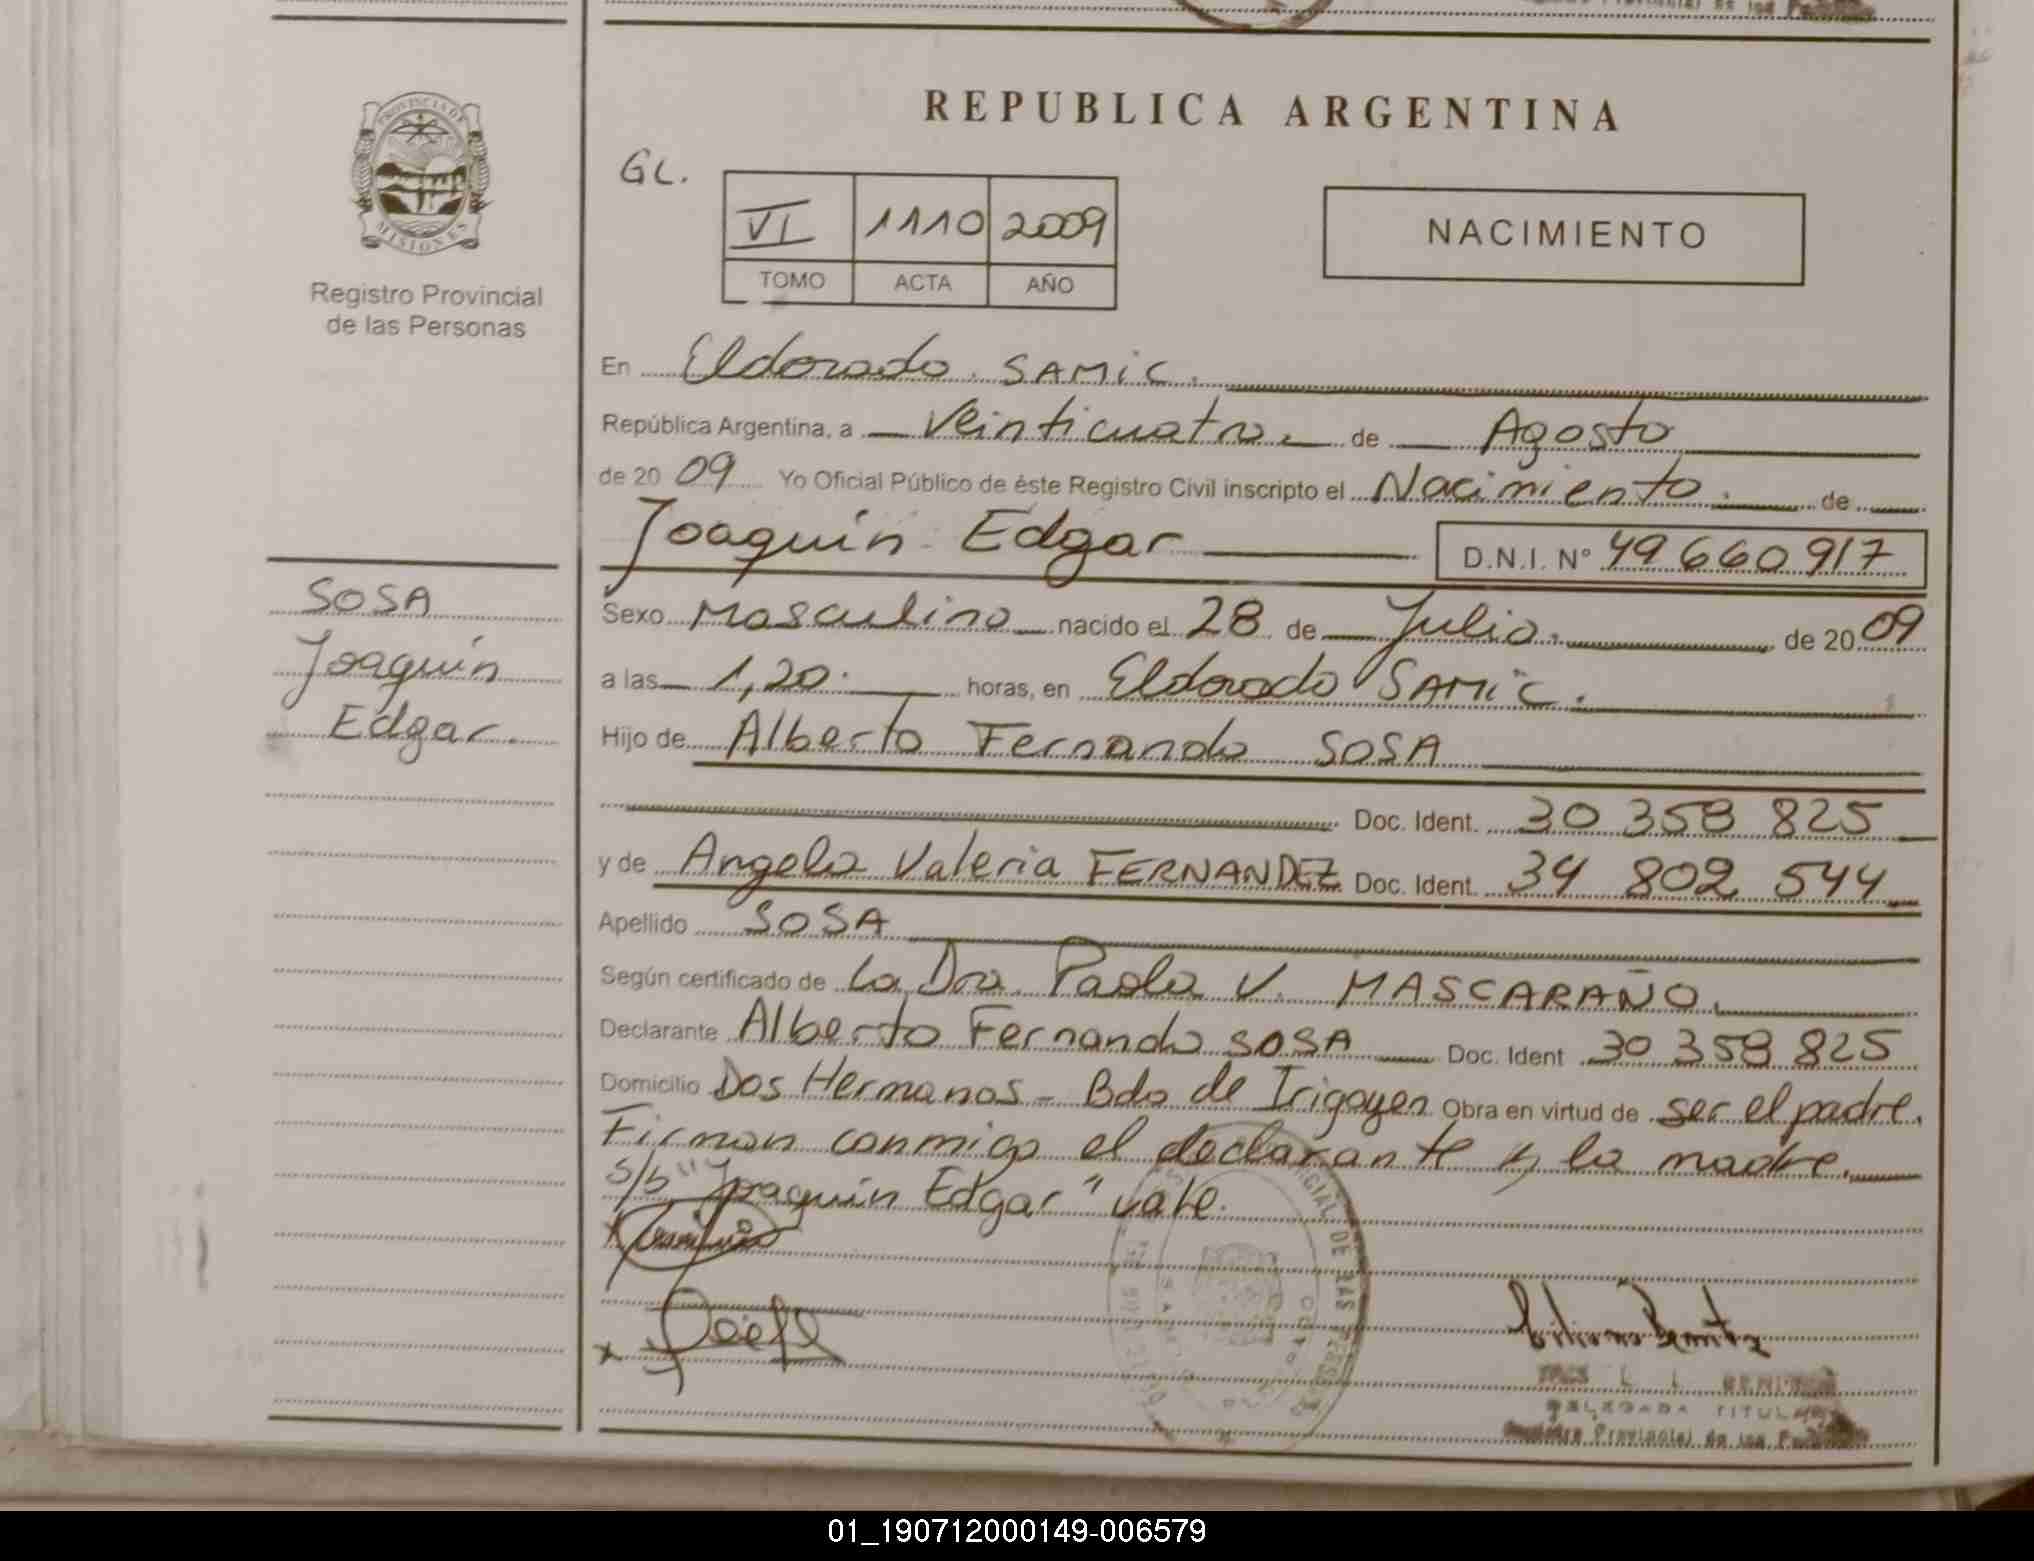 REPUBLICA ARGENTINA
PROVINCIA DE
MISIONES
Registro Provincial
de las Personas
GL.
VI 1110 2009
TOMO ACTA AÑO
NACIMIENTO
En Eldorado. SAMiC.
República Argentina, a Veinticuatro. de Agosto
de 20 09 Yo Oficial Público de éste Registro Civil inscripto el Nacimiento. de
Joaquín Edgar D.N.I. Nº 49 660 917
SOSA
Joaquín
Edgar.
Sexo Masculino nacido el 28 de Julio. de 20 09
a las 1,20. horas, en Eldorado SAMiC.
Hijo de Alberto Fernando SOSA
Doc. Ident. 30 358 825
y de Angela Valeria FERNANDEZ Doc. Ident. 34 802 544
Apellido SOSA
Según certificado de La Dra. Paola V. MASCARAÑO.
Declarante Alberto Fernando SOSA Doc. Ident 30 358 825
Domicilio Dos Hermanos - Bdo de Irigoyen Obra en virtud de ser el padre.
Firman conmigo el declarante y la madre.
S/b "Joaquín Edgar" vale.
DELEGADA TITULAR
Registro Provincial de las
01_190712000149-006579